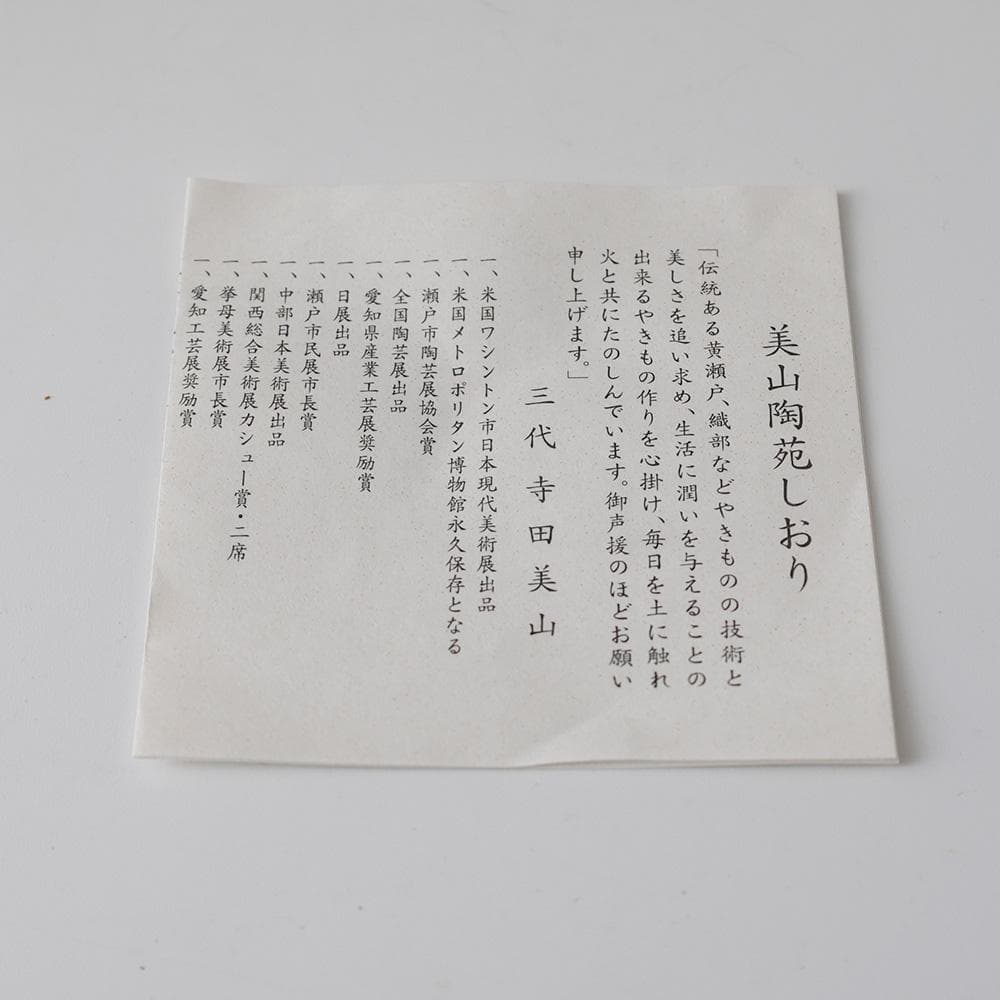 美山陶苑しおり
「伝統ある黄瀬戸、織部などやきものの技術と
美しさを追い求め、生活に潤いを与えることの
出来るやきもの作りを心掛け、毎日を土に触れ
火と共にたのしんでいます。御声援のほどお願い
申し上げます。」
三代 寺田美山
一、米国ワシントン市日本現代美術展出品
一、米国メトロポリタン博物館永久保存となる
一、瀬戸市陶芸展協会賞
一、全国陶芸展出品
一、愛知県産業工芸展奨励賞
一、日展出品
一、瀬戸市民展市長賞
一、中部日本美術展出品
一、関西総合美術展カシュー賞・二席
一、挙母美術展市長賞
一、愛知工芸展奨励賞